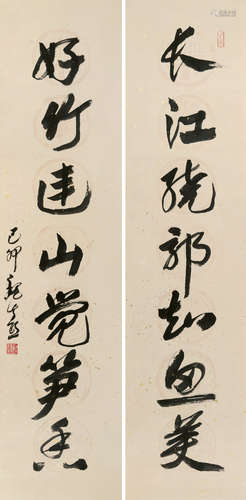 长江绕郭知鱼美
好竹连山觉笋香
己卯魏